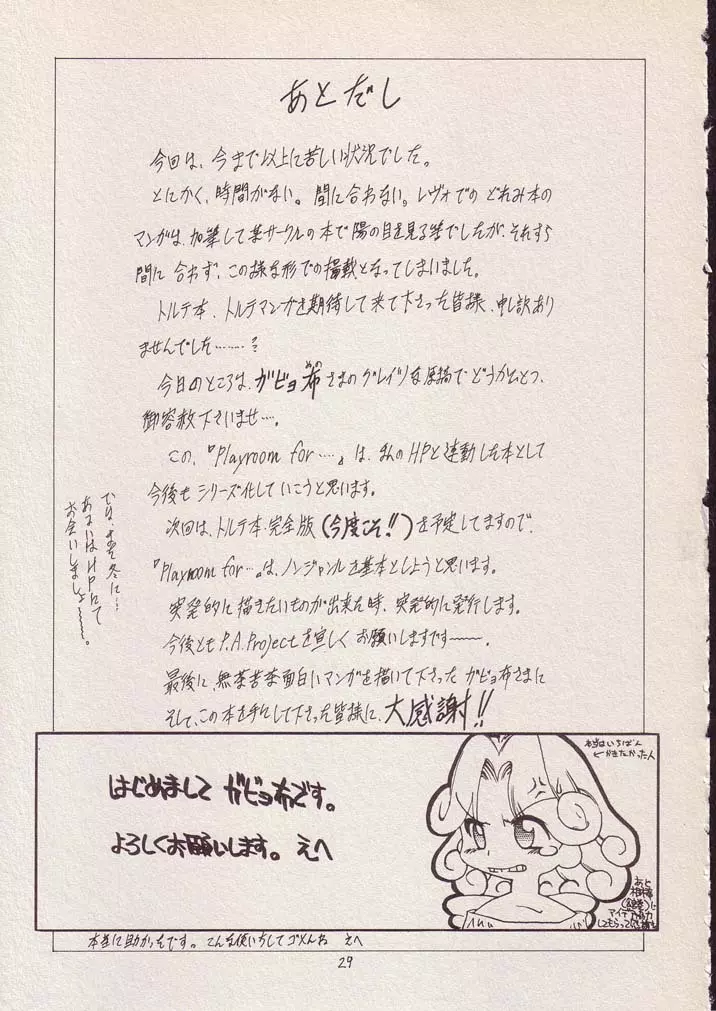 あとだし
今回は、今まで以上に苦しい状況でした。
とにかく、時間がない。間に合わない。レヴォでの どれみ本の
マンガは、加筆して某サークルの本で陽の目を見る筈でしたが、それすら
間に合わず、この様な形での掲載となってしまいました。
トルテ本、トルテマンガを期待して来て下さった皆様、申し訳あり
ませんでした………?
今日のところは、ガビョ布さまのグレイツな原稿で どうかひとつ、
御容赦下さいませ…。
この、『Playroom for …』は、私のHPと連動した本として
今後も シリーズ化していこうと思います。
次回は、トルテ本 完全版(今度こそ!!)を予定してますので、
『Playroom for …』は、ノンジャンルを基本としようと思います。
突発的に描きたいものが出来た時、突発的に発行します。
今後ともP.A.Projectを宜しく お願いしますです〜〜。
最後に、無茶苦茶面白いマンガを描いて下さった ガビョ布さまに
そして、この本を手にして下さった皆様に、大感謝!!
では、また冬に…
あるいはHPにて
お会いしましょ〜〜。
はじめまして ガビョ布です。
よろしくお願いします。 えへ
本当はいちばん
←かきたかった人
あと
アイデア
本当に助かったです。こんな使いちしてゴメんお えへ
29